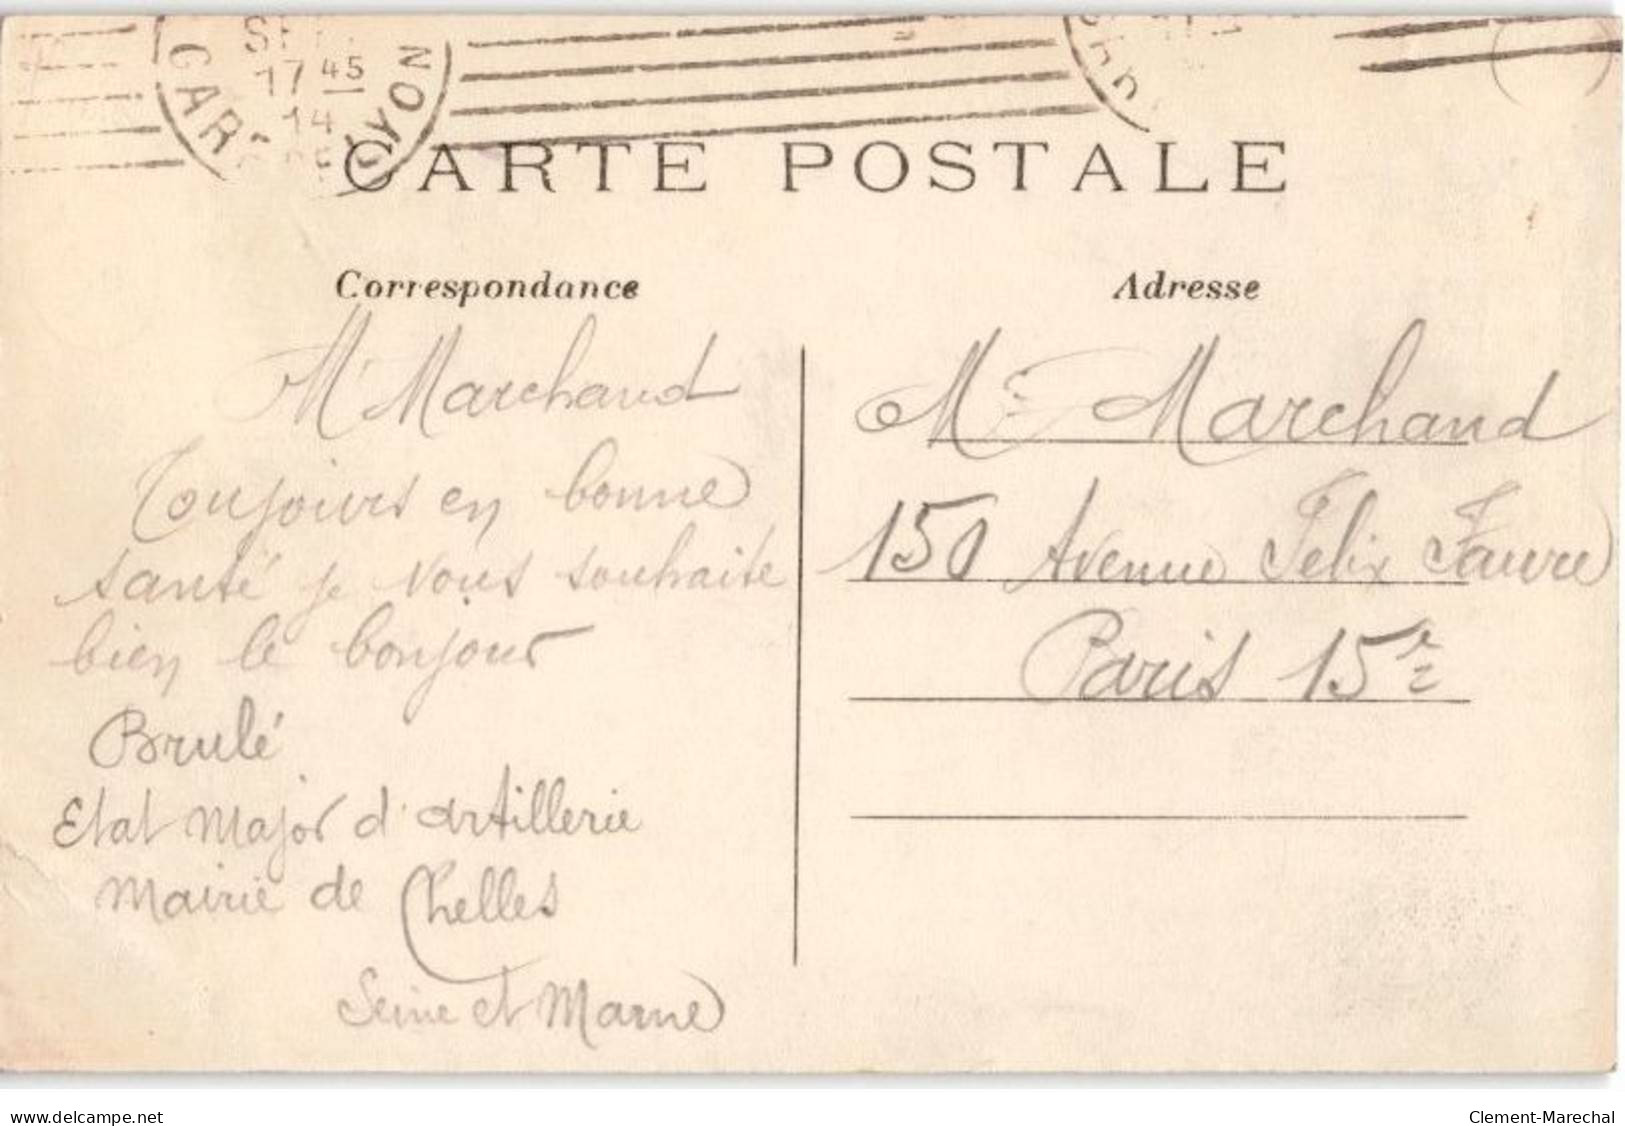 17 45
14
GARE LYON
CARTE POSTALE
Correspondance
Mr Marchand
Toujours en bonne
santé je vous souhaite
bien le bonjour
Brulé
Etat Major d'artillerie
Mairie de Chelles
Seine et Marne
Adresse
Mr Marchand
150 Avenue Felix Faure
Paris 15e
www.delcampe.net
Clement-Marechal